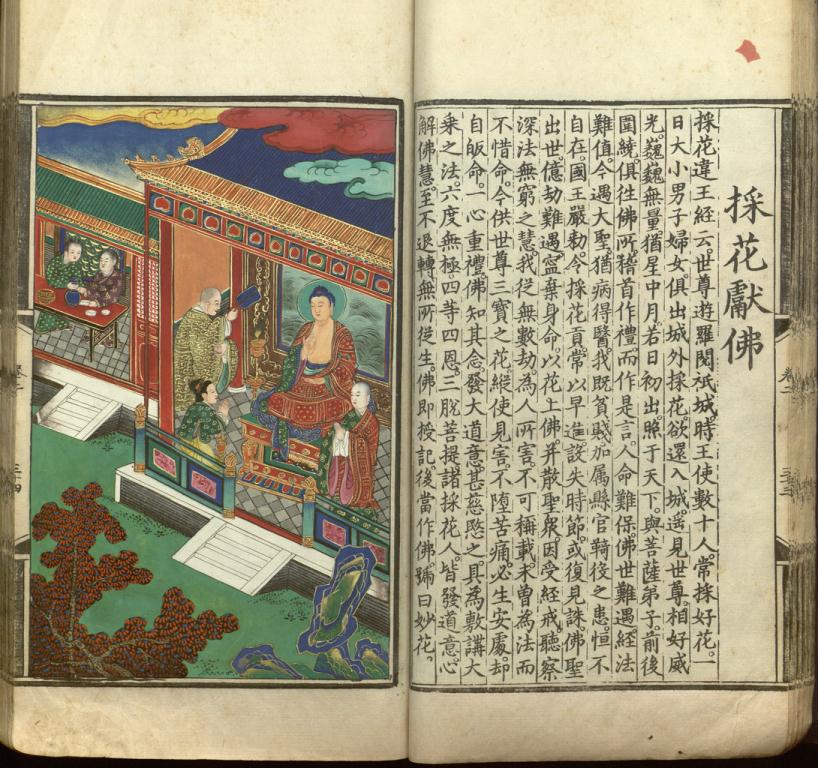 採花獻佛
採花違王經云。世尊遊羅閱祇城。時王使數十人。常採好花。一
日大小男子婦女。俱出城外採花。欲還入城。遙見世尊。相好威
光。巍巍無量。猶星中月。若日初出。照于天下。與菩薩弟子。前後
圍繞。俱往佛所。稽首作禮。而作是言。人命難保。佛世難遇。經法
難值。今遇大聖。猶病得醫。我既貧賤。加屬縣官。鞫役之患。恒不
自在。國王嚴勅。令採花貢。常以早進。設失時節。或復見誅。佛聖
出世。億劫難遇。寧棄身命。以花上佛。并散聖眾。因受經戒。聽察
深法。無窮之慧。我從無數劫。為人所害。不可稱載。未曾為法。而
不惜命。今供世尊。三寶之花。縱使見害。不墮苦痛。必生安處。却
自皈命。一心重禮。佛知其念。發大道意。甚慈愍之。具為敷講大
乘之法。六度無極。四等四恩。三脫菩提。諸採花人。皆發道意。心
解佛慧。至不退轉。無所從生。佛即授記。後當作佛。號曰妙花。